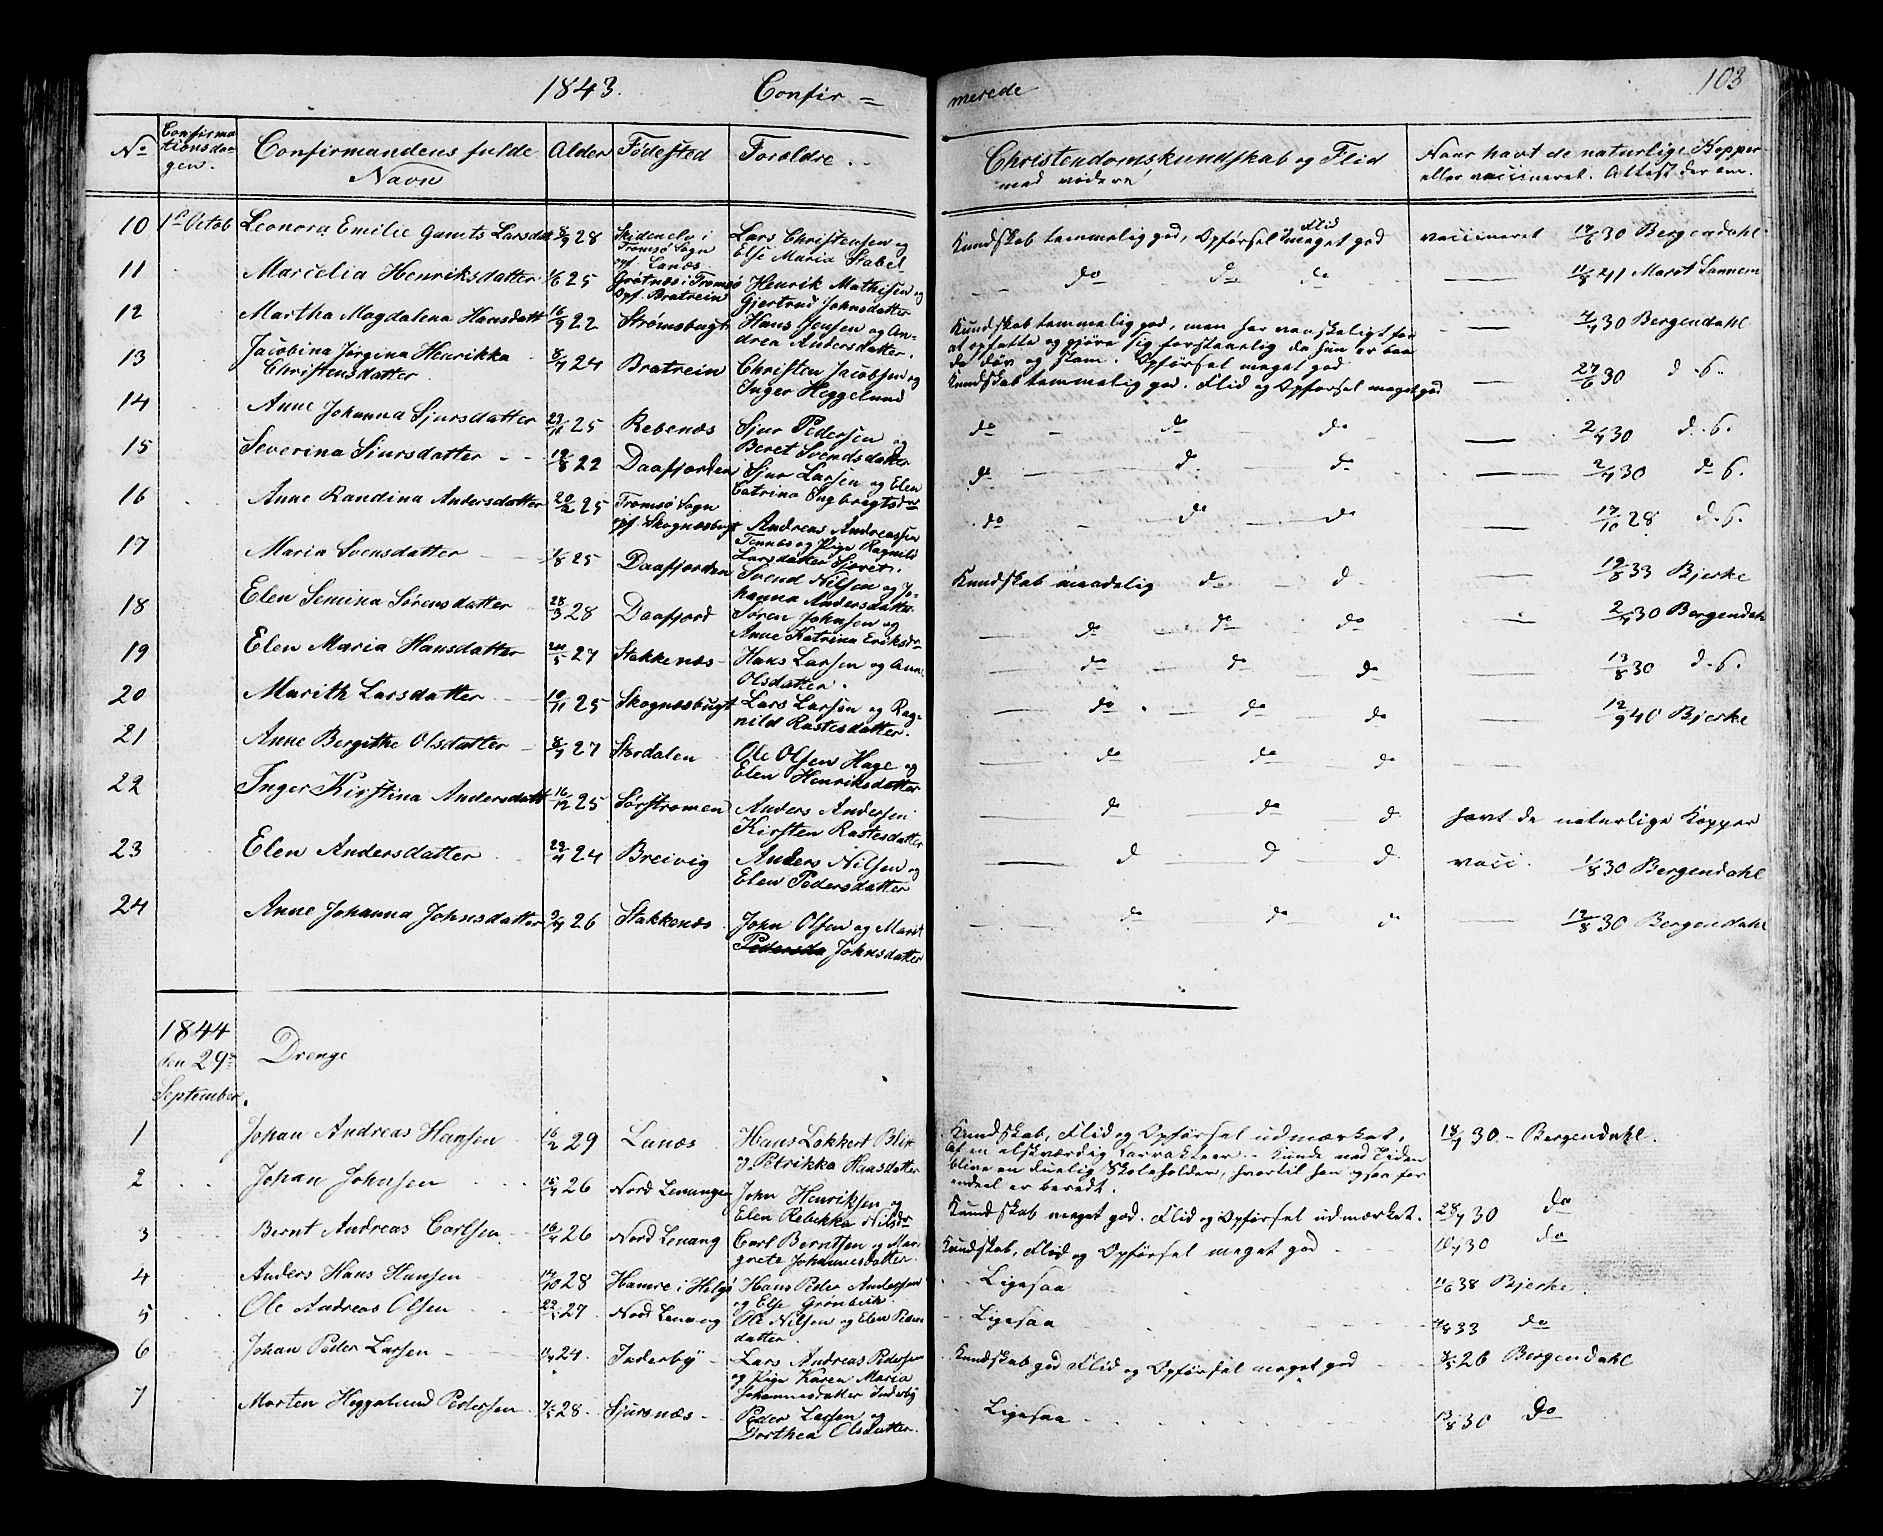 1843. Confir =
merede
103
No Confirmationsdagen. Confirmandens fulde Navn Alder Fødested Forældre
Christendomskundskab og Flid med videre
Naar havt de naturlige Kopper eller vaccineret. Attest derom.
10 1st Octob Leonora Emilie Larsdatt 8/9 28 Skidenelv i Tromsø Sogn opf. Lanæs Lars Christensen og Else Maria Stabel Kundskab temmelig god, Flid Opførsel meget god vaccineret 17/6 30 Bergendahl
11 Marcelia Henriksdatter 1/6 25 Grøtnæs i Tromsø opf. Bratrein Henrik Mathisen og Gjertrud Johnsdatter do do do 11/8 41
12 Martha Magdalena Hansdatt 16/9 22 Strømsbugt Hans Jensen og Andrea Andersdatter. Kundskab temmelig god, men har vanskeligt for at opfatte og gjøre sig forstaaelig da hun er baade døv og stam. Opførsel meget god 7/7 30 Bergendahl
13 Jacobina Jørgina Henrikka Christensdatter 8/7 24 Bratrein Christen Jacobsen og Inger Heggelund Kundskab temmelig god. Flid og Opførsel meget god 27/6 30 d. B.
14 Anne Johanna Sjursdatter 23/11 25 Rebenæs Sjur Pedersen og Beret Svendsdatter do do do 2/7 30 d. B.
15 Severina Sjursdatter 19/8 22 Daafjorden Sjur Larsen og Elen Catrina Ingbregtsdtr do d. do 2/7 30 do B.
16 Anne Randina Andersdatter 20/2 25 Tromsø Sogn opf. Skognæsbugt Andreas Andreassen og Pige Ragnild Larsdatter do do do 17/10 28 d. B.
17 Maria Svensdatter 1/8 25 Daafjorden Svend Nilsen og Johanna Andersdatter. Kundskab maadelig do d. 19/8 33 Bjerke
18 Elen Semina Sørensdatter 28/3 28 Daafjord Søren Johnsen og Anne Katrina Eriksdr do do do 2/7 30 Bergendahl
19 Elen Maria Hansdatter 24/5 27 Stakkenæs Hans Larsen og Ann Olsdatter. do do do 13/8 30 d. B.
20 Marith Larsdatter 10/11 25 Skognæsbugt Lars Larsen og Ragnild Rastesdatter. do do do 12/9 40 Bjerke
21 Anne Bergithe Olsdatter 8/7 27 Stordalen Ole Olsen Hage og Elen Henriksdatter do do do
22 Inger Kirstina Andersdatt 16/12 25 Sørstromen Anders Andersen Kirsten Rastesdatter d do d havt de naturlige Kopper
23 Elen Andersdatter 29/4 24 Breivig Anders Nilsen og Elen Pedersdatter d d d vacci. 1/8 30 Bergendahl
24 Anne Johanna Johnsdatter 9/7 26 Stakkenæs John Olsen og Marit Pedersda Johnsdatter do do do 12/8 30 Bergendahl
1844 den 29de September. Drenge
1 Johan Andreas Hansen 16/2 29 Lanæs Hans Lokkert Blix og Petrikka Hansdatter Kundskab, Flid og Opførsel udmærket. Af en elskværdig Carrakteer. Kunde ved Tiden blive en duelig Skoleholder, hvortil han ogsaa for endeel er beredt. 18/7 30 - Bergendahl.
2 Johan Johnsen 15/4 26 Nord Lenangen John Henriksen og Elen Rebekka Nilsdr Kundskab meget god. Flid og Opførsel udmærket. 28/7 30 do
3 Bernt Andreas Carlsen 16/4 26 Nord Lenang Carl Berntsen og Margrete Johannesdatter. Kundskab, Flid og Opførsel meget god 30 do
4 Anders Hans Hansen 28 Hamre i Helgø Hans Peder Andersen og Else Grønbeck. Ligesaa 38 Bjerke.
5 Ole Andreas Olsen 27 Nord Lenang Ole Nilsen og Elen Pedersdatter. Ligesaa 33 do
6 Johan Peder Larsen 24. Inderby Lars Andreas Pedersen og Pige Karen Maria Johannesdatter Inderby Kundskab god Flid og Opførsel meget god 26 Bergendahl
7 Morten Heggelund Pedersen 28. Sjursnæs Peder Larsen og Dorthea Olsdatter. Ligesaa 13/8 30 do